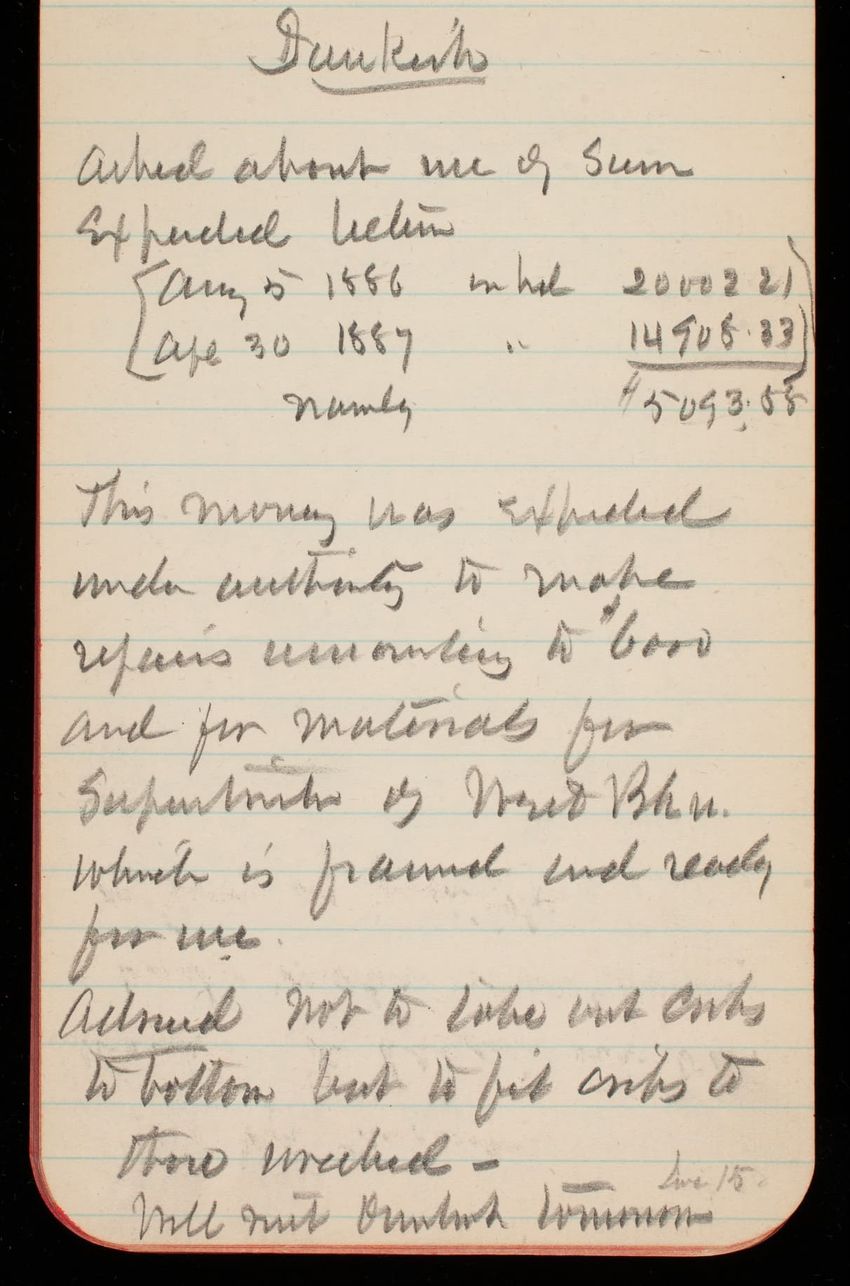 Dunkirk
Asked about use of Sum
Expended between
Aug 5 1886 on hd 20002 21
Apr 30 1887 " 14908.33
namely $5093.88
This money was expended
under authority to make
repairs amounting to $6000
and for materials for
Superstructr of West Bkw.
which is framed and ready
for use.
Advised not to take out cribs
to bottom but to fit cribs to
those wrecked -
See 15
Will visit Dunkirk tomorrow